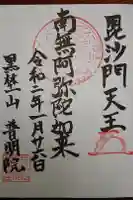 毘沙門天王
南無阿弥陀如来
令和二年一月廿六日
黒林山
普明院